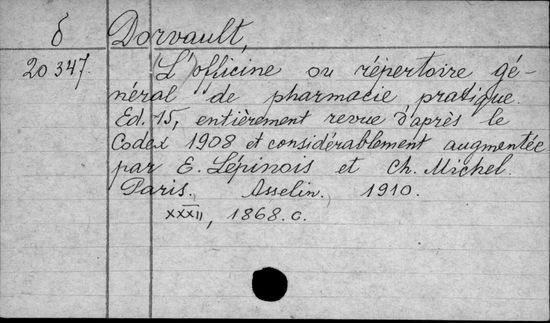 б Dorvault,
20347. L'officine ou répertoire gé-
néral de pharmacie pratique.
Ed. 15, entièrement revue d'après le
Codex 1908 et considérablement augmentée
par E. Lépinois et Ch. Michel.
Paris. Asselin. 1910.
XXXII, 1868.c.